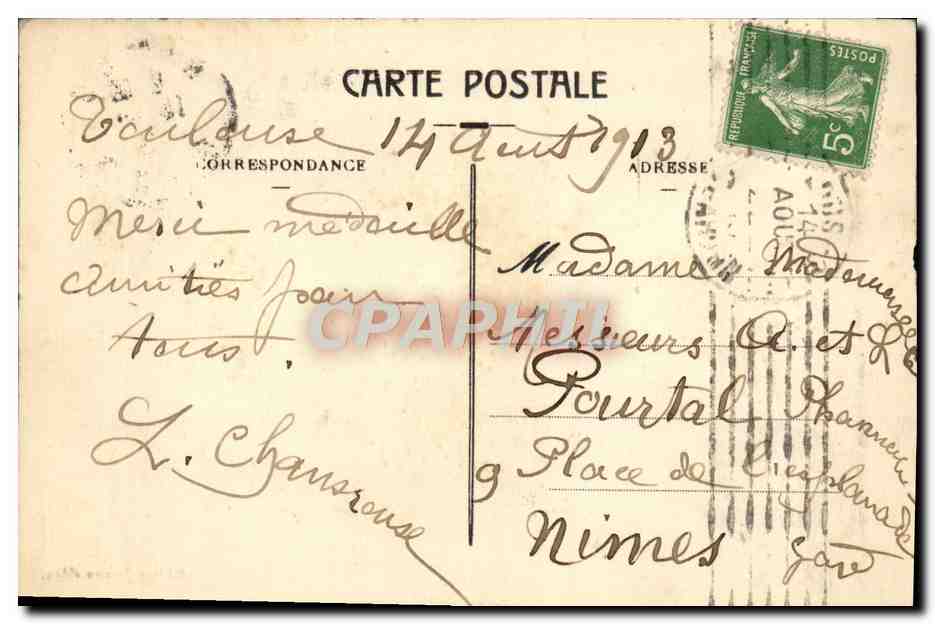 CARTE POSTALE
Toulouse 14 Aout 1913
CORRESPONDANCE
ADRESSE
REPUBLIQUE FRANÇAISE
POSTES
5c
14
AOUT
Merci médaille
amitiés pour
tous.
L. Chansrouse
Madame Mademoiselle
Messieurs A. et L
Pourtal Pharmacien
9 Place de l'esplanade
Nimes gare
CPAPHIL